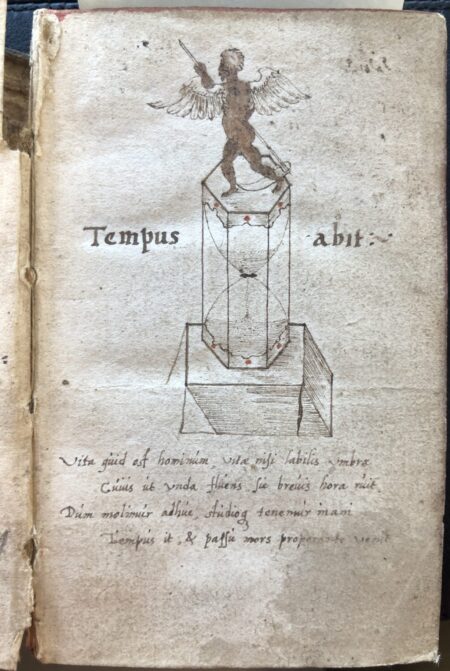 Tempus abit:~
Vita quid est hominum vitæ nisi labilis vmbra
Cuius ut vnda fluens, sic breuis hora ruit
Dum molimur adhuc, studioq tenemur inani
Tempus it, & passu mors properante venit